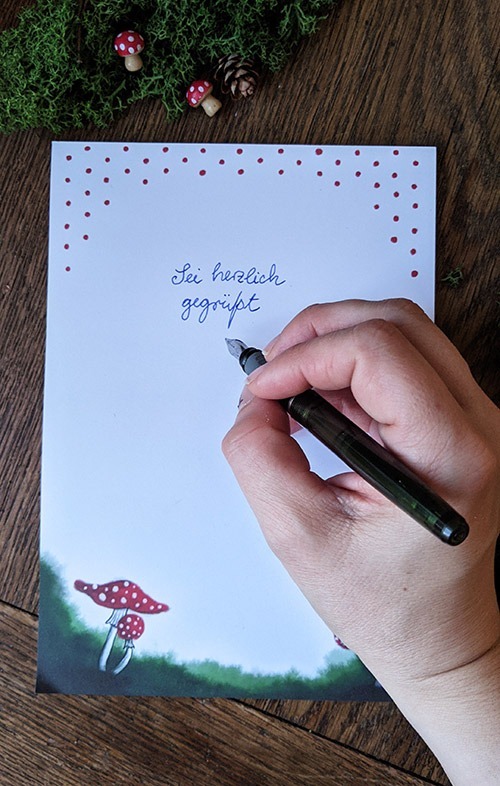 Sei herzlich
gegrüßt